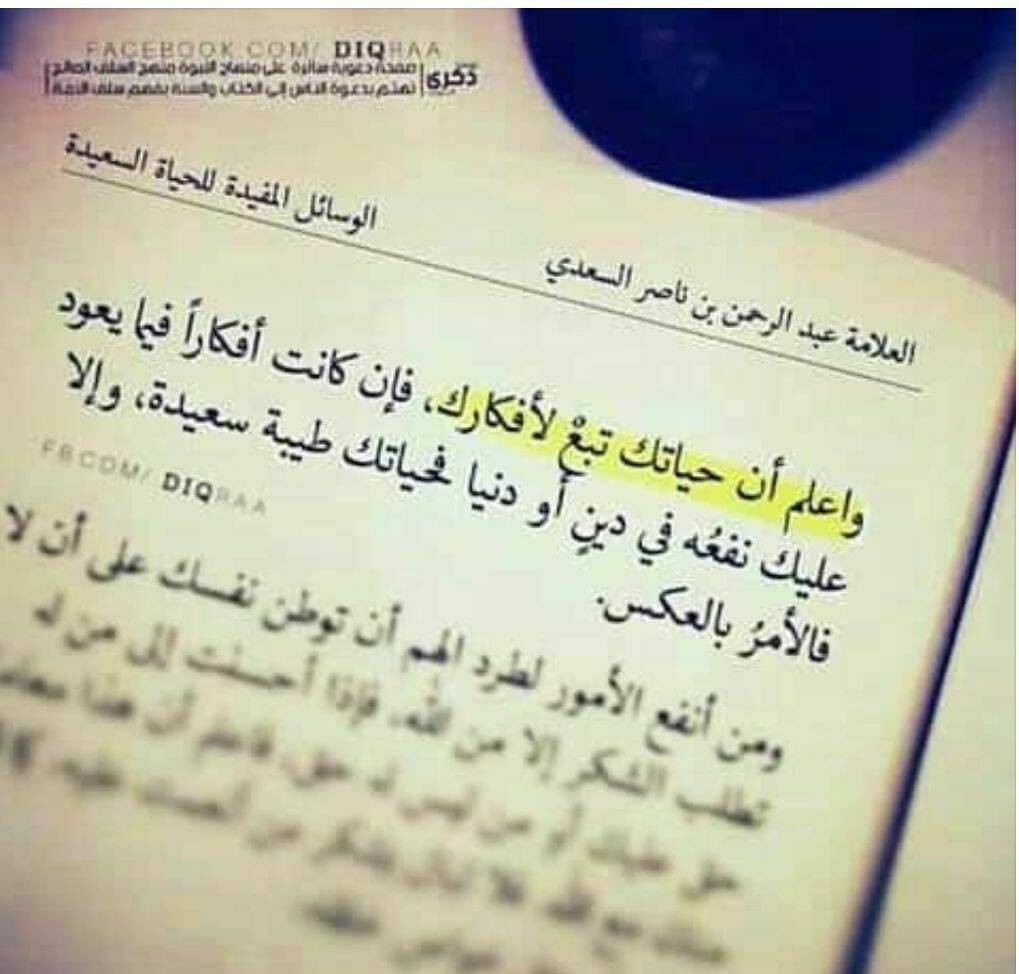 FACEBOOK.COM/ DIQRAA
ذكرى
صفحة دعوية سائرة على منهاج النبوة منهج السلف الصالح
تهتم بدعوة الناس إلى الكتاب والسنة بفهم سلف الامة
العلامة عبد الرحمن بن ناصر السعدي
الوسائل المفيدة للحياة السعيدة
واعلم أن حياتك تبعٌ لأفكارك، فإن كانت أفكاراً فيما يعود
عليك نفعُه في دينٍ أو دنيا فحياتك طيبة سعيدة، وإلا
فالأمرُ بالعكس.
FB.COM/ DIQRAA
ومن أنفع الأمور لطرد الهم أن توطن نفسك على أن لا
تطلب الشكر إلا من الله، فإذا أحسنت إلى من له
حق عليك أو من ليس له حق، فاعلم أن هذا
منك مع الله فلا تبال بشكر من أنعمت عليه